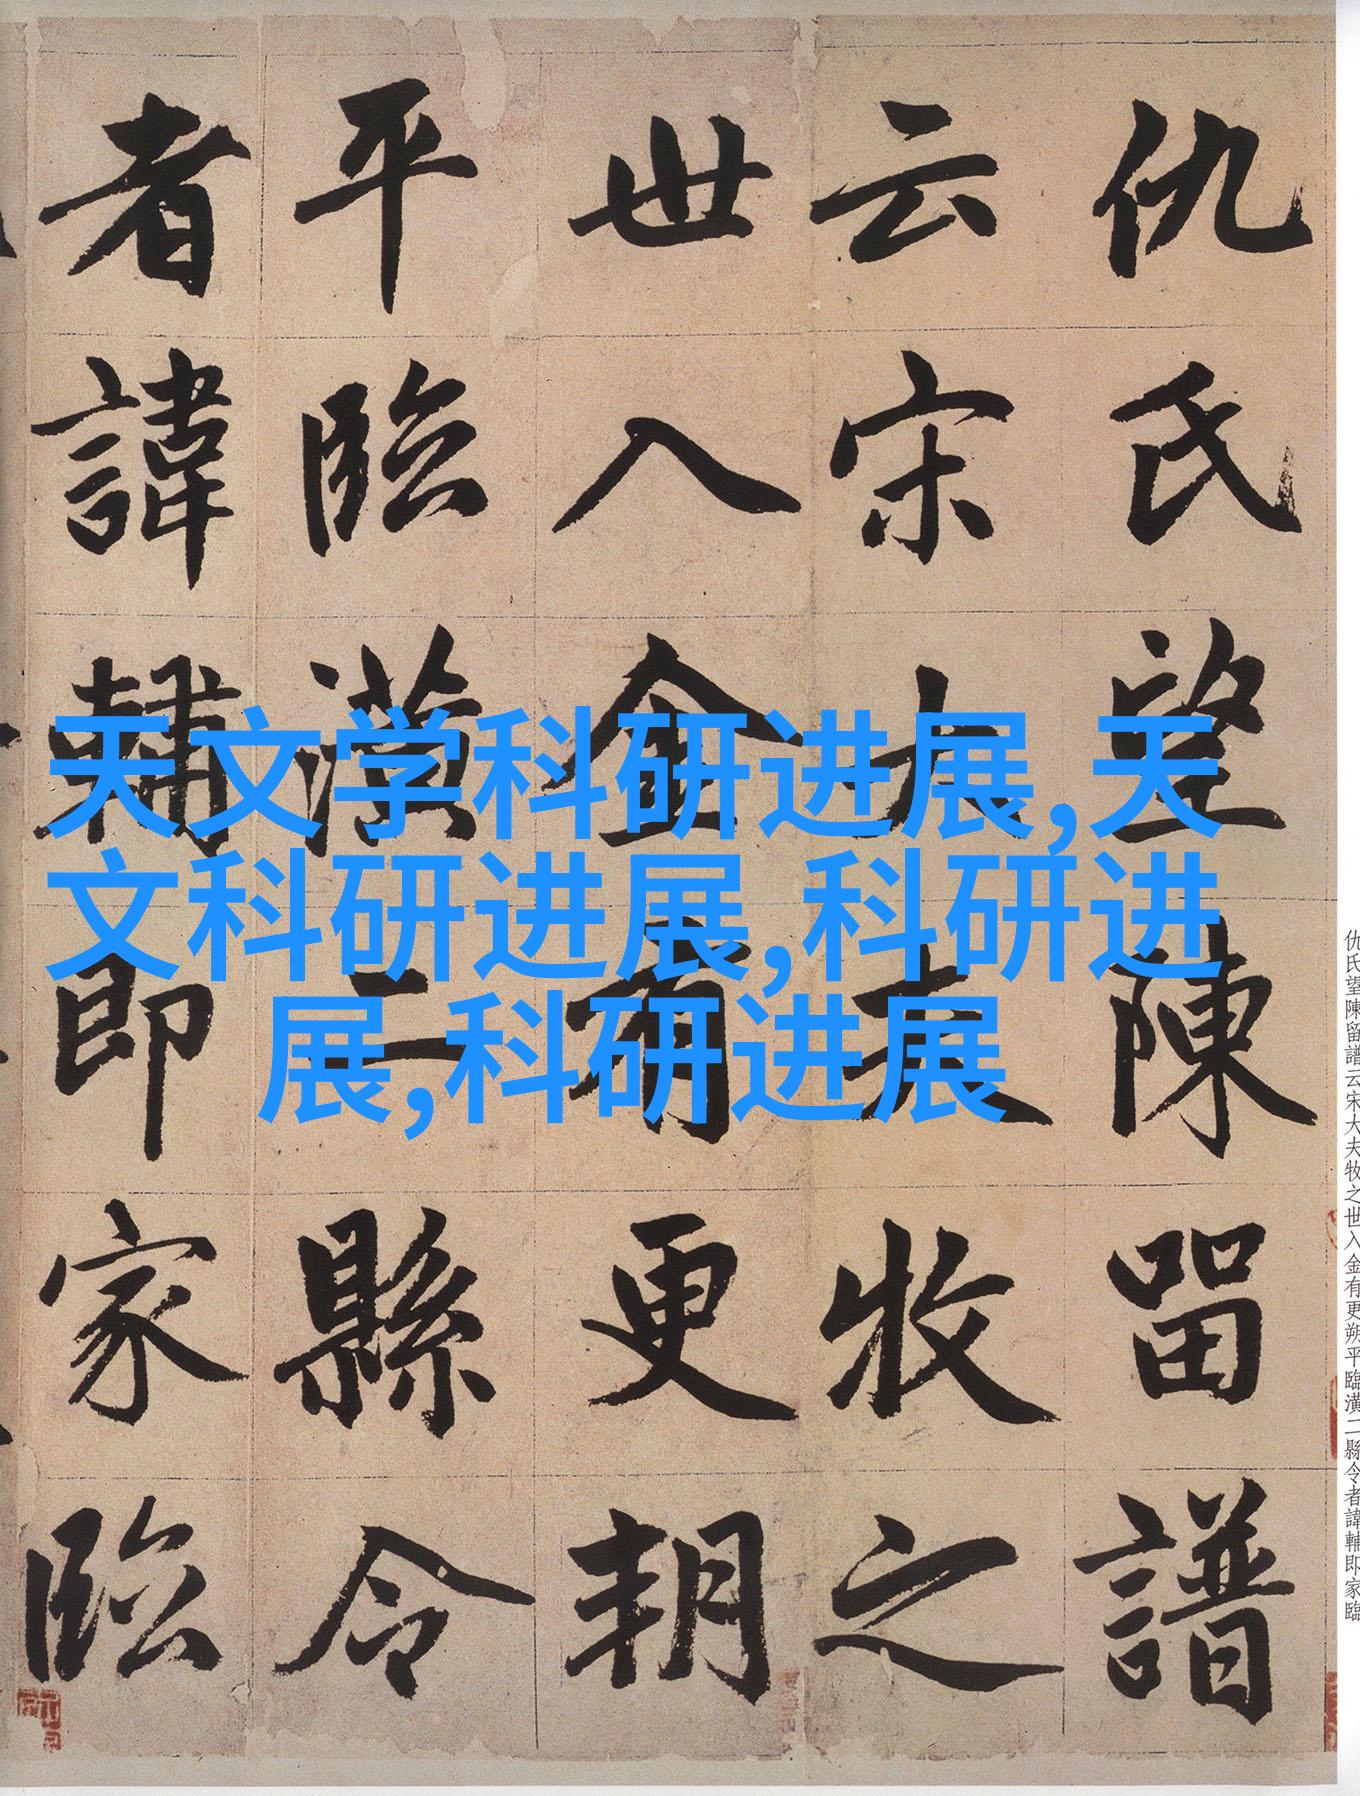 天文学科研进展,天
文科研进展,科研进
展,科研进展
仇氏望陳留譜
云宋大夫牧之
世入金有更朔
平臨潢二縣令
者諱輔即家臨
仇氏望陳留譜云宋大夫牧之世入金有更朔平臨潢二縣令者諱輔即家臨